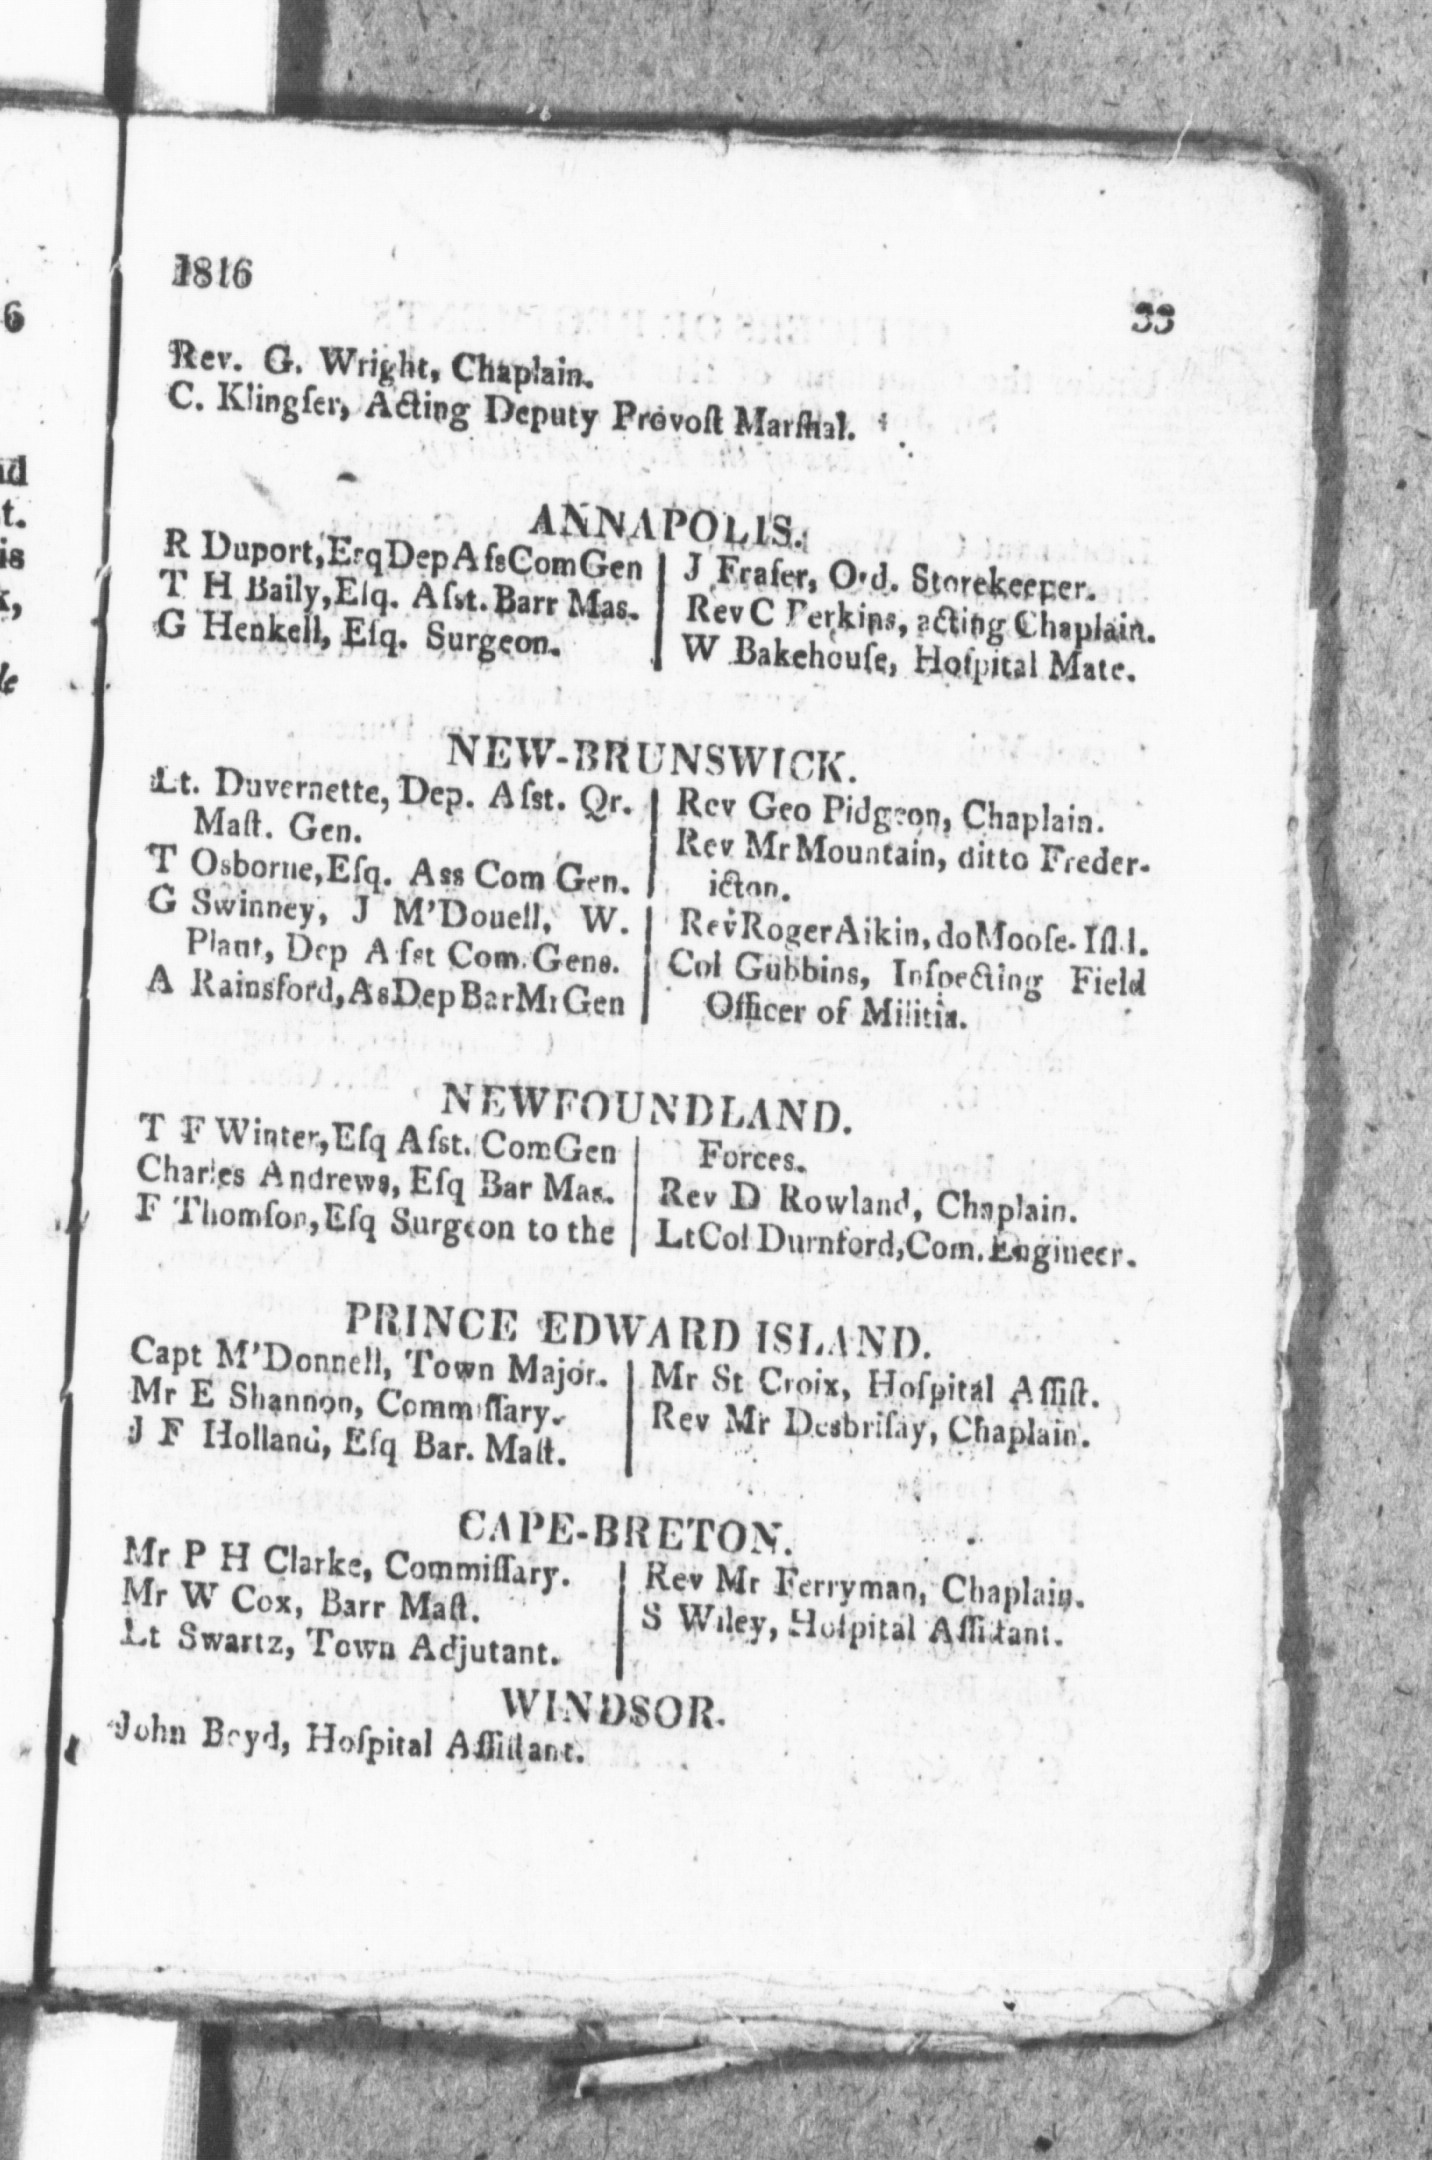 1816
33
Rev. G. Wright, Chaplain.
C. Klingſer, Acting Deputy Provoſt Marſhal.
ANNAPOLIS.
R Duport, Esq Dep Aſs Com Gen
T H Baily, Eſq. Aſst. Barr Mas.
G Henkell, Eſq. Surgeon.
J Fraſer, Ord. Storekeeper.
Rev C Perkins, acting Chaplain.
W Bakehouſe, Hoſpital Mate.
NEW-BRUNSWICK.
Lt. Duvernette, Dep. Aſst. Qr.
Maſt. Gen.
T Osborne, Eſq. Ass Com Gen.
G Swinney, J M'Douell, W.
Plant, Dep Aſst Com. Gens.
A Rainsford, As Dep Bar Mr Gen
Rev Geo Pidgeon, Chaplain.
Rev Mr Mountain, ditto Freder-
icton.
Rev Roger Aikin, do Mooſe-Iſl.
Col Gubbins, Inſpecting Field
Officer of Militia.
NEWFOUNDLAND.
T F Winter, Eſq Aſst. Com Gen
Charles Andrews, Eſq Bar Mas.
F Thomſon, Eſq Surgeon to the
Forces.
Rev D Rowland, Chaplain.
Lt Col Durnford, Com. Engineer.
PRINCE EDWARD ISLAND.
Capt M'Donnell, Town Major.
Mr E Shannon, Commiſſary.
J F Holland, Eſq Bar. Maſt.
Mr St Croix, Hoſpital Aſſiſt.
Rev Mr Desbriſay, Chaplain.
CAPE-BRETON.
Mr P H Clarke, Commiſſary.
Mr W Cox, Barr Maſt.
Lt Swartz, Town Adjutant.
Rev Mr Ferryman, Chaplain.
S Wiley, Hoſpital Aſſiſtant.
WINDSOR.
John Boyd, Hoſpital Aſſiſtant.